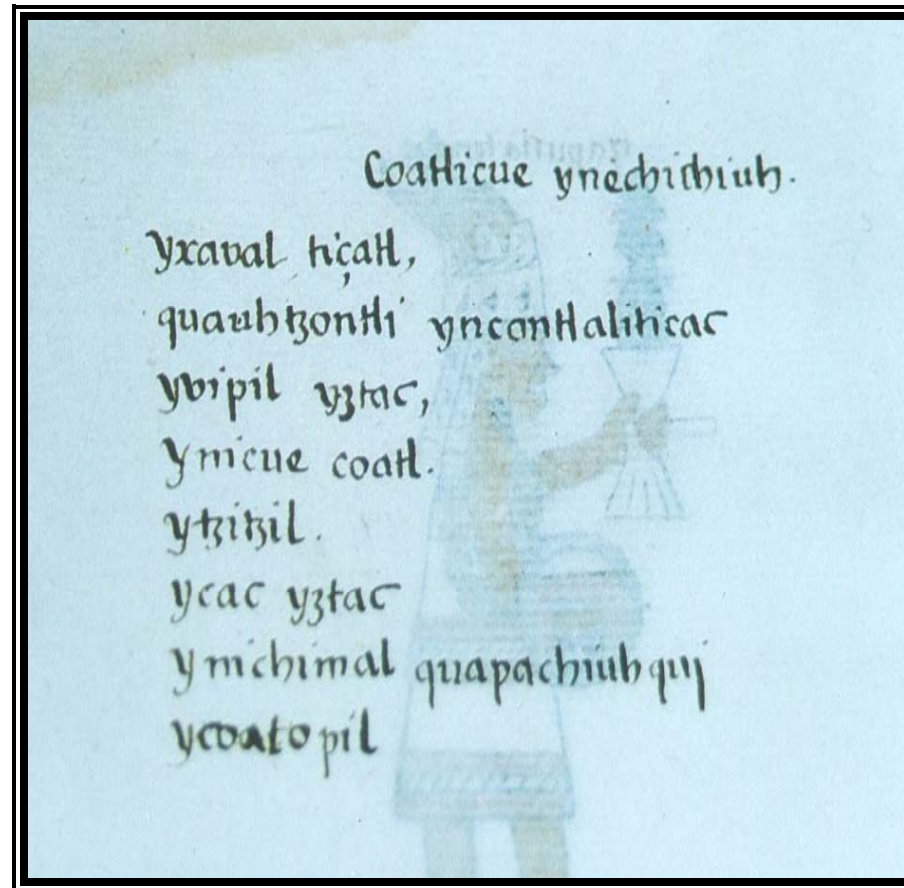 Coatlicue ynechichiuh.
yxaval tiçatl,
quauhtzontli yncontlaliticac
yvipil yztac,
ynicue coatl.
ytzitzil.
ycac yztac
ynichimal quapachiuhquj
ycoatopil